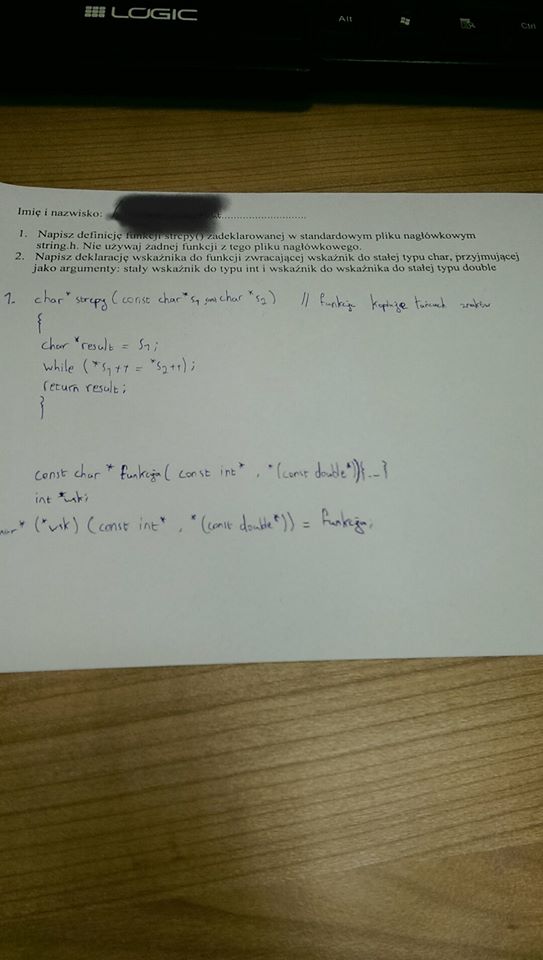 LOGIC
Alt
Ctrl
Imię i nazwisko:
1. Napisz definicję funkcji strcpy() zadeklarowanej w standardowym pliku nagłówkowym
string.h. Nie używaj żadnej funkcji z tego pliku nagłówkowego.
2. Napisz deklarację wskaźnika do funkcji zwracającej wskaźnik do stałej typu char, przyjmującej
jako argumenty: stały wskaźnik do typu int i wskaźnik do wskaźnika do stałej typu double
1. char* strcpy (const char* s1, char *s2) // funkcja kopiuje łańcuch znaków
{
char *result = s1;
while (*s1++ = *s2++);
return result;
}
const char* funkcja( const int* , *(const double*)){...}
int *wsk;
(*wsk) (const int* , *(const double*)) = funkcja;